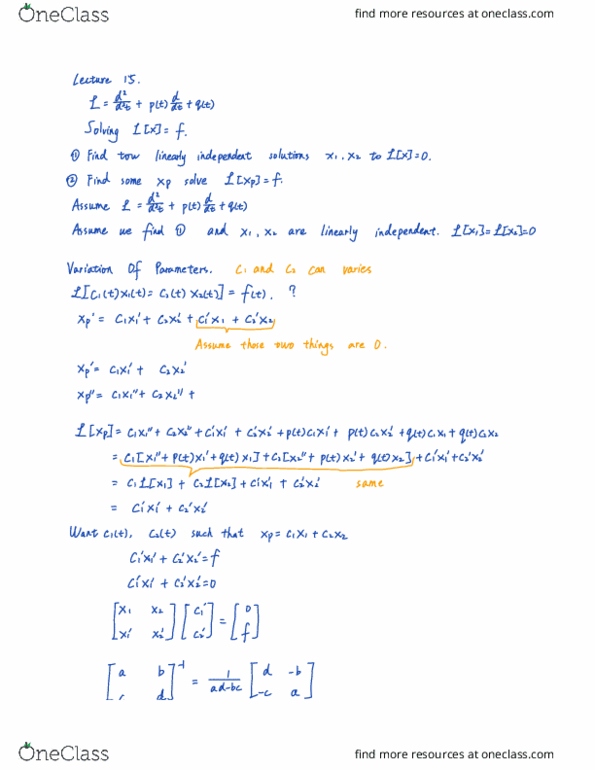 OneClass
find more resources at oneclass.com
Lecture 15.
L = d²/d²t + p(t) d/dt + q(t)
Solving L[x] = f.
① Find tow linearly independent solutions x₁, x₂ to L[x]=0.
② Find some xp solve L[xp]=f.
Assume L = d²/d²t + p(t) d/dt + q(t)
Assume we find ① and x₁, x₂ are linearly independent. L[x₁]=L[x₂]=0
Variation Of Parameters. C₁ and C₂ can varies
L[C₁(t)x₁(t) = C₂(t) x₂(t)] = f(t). ?
xp' = C₁x₁' + C₂x₂' + C₁'x₁ + C₂'x₂
Assume those two things are 0.
xp' = C₁x₁' + C₂x₂'
xp'' = C₁x₁'' + C₂x₂'' +
L[xp] = C₁x₁'' + C₂x₂'' + C₁'x₁' + C₂'x₂' + p(t)C₁x₁' + p(t)C₂x₂' + q(t)C₁x₁ + q(t)C₂x₂
= C₁[x₁'' + p(t)x₁' + q(t)x₁] + C₂[x₂'' + p(t)x₂' + q(t)x₂] + C₁'x₁' + C₂'x₂'
= C₁L[x₁] + C₂L[x₂] + C₁'x₁' + C₂'x₂' same
= C₁'x₁' + C₂'x₂'
Want C₁(t), C₂(t) such that xp = C₁x₁ + C₂x₂
C₁'x₁' + C₂'x₂' = f
C₁'x₁' + C₂'x₂' = 0
[x₁ x₂] [C₁'] = [0]
[x₁' x₂'] [C₂'] [f]
[a b]⁻¹ = 1/(ad-bc) [d -b]
[c d] [-c a]
OneClass
find more resources at oneclass.com